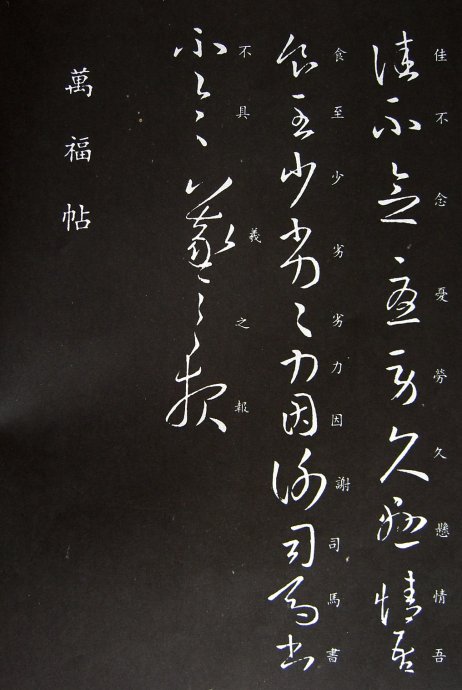 佳不念憂勞久懸情吾
食至少劣劣力因謝司馬書
不具羲之報
萬福帖